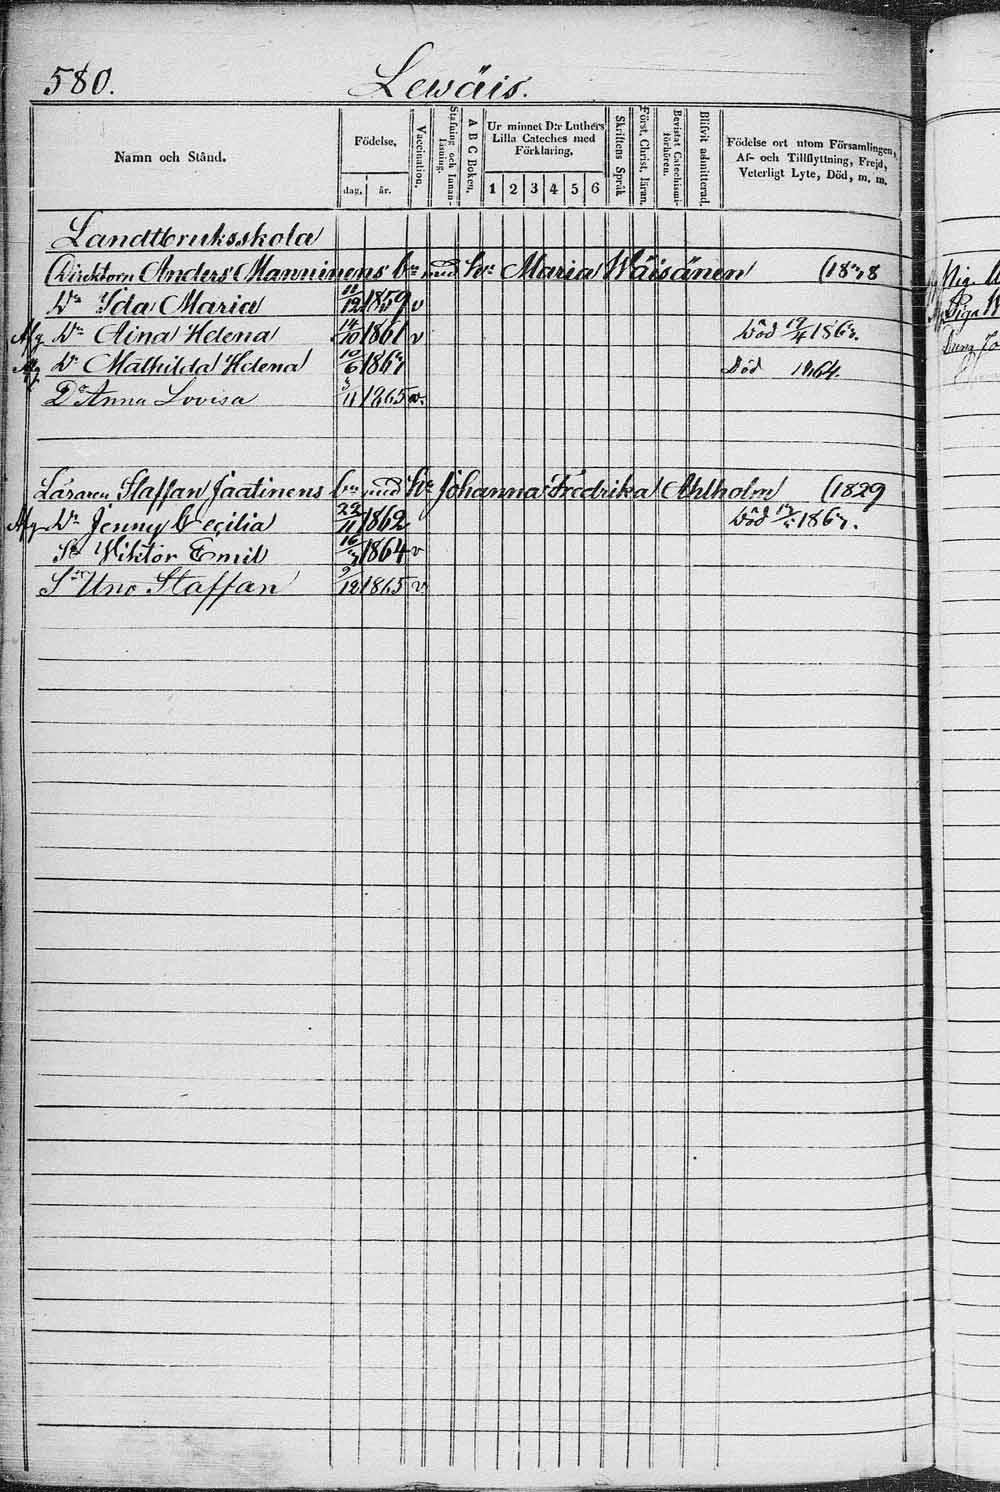 580. Lewäis.
Namn och Stånd.
Födelse,
dag. år.
Vaccination.
Stafning och Innan-läsning.
A B C Boken.
Ur minnet D:r Luthers Lilla Cateches med Förklaring,
1 2 3 4 5 6
Skriftens Språk
Först. Christ. läran.
Bevistat Catechismi-förhören.
Blifvit admitterad.
Födelse ort utom Församlingen, Af- och Tillflyttning, Frejd, Veterligt Lyte, Död, m. m.
Landtbruksskola
Direktorn Anders Manninens bn med hu Maria Wäisänen
Dr Ida Maria 11/12 1859 v
Afg Dr Aina Helena 14/10 1861 v Död
Afg Dr Mathilda Helena 10/6 Död 1864.
Dr Anna Lovisa 3/11 1865 v.
Läraren Staffan Jaatinens bn med hu Johanna Fredrika Ahlholm (1829
Afg Dr Jenny Cecilia 22/11 1862 Död
Sn Wiktor Emil 1864 v
Sn Uno Staffan 9/12 1865 v